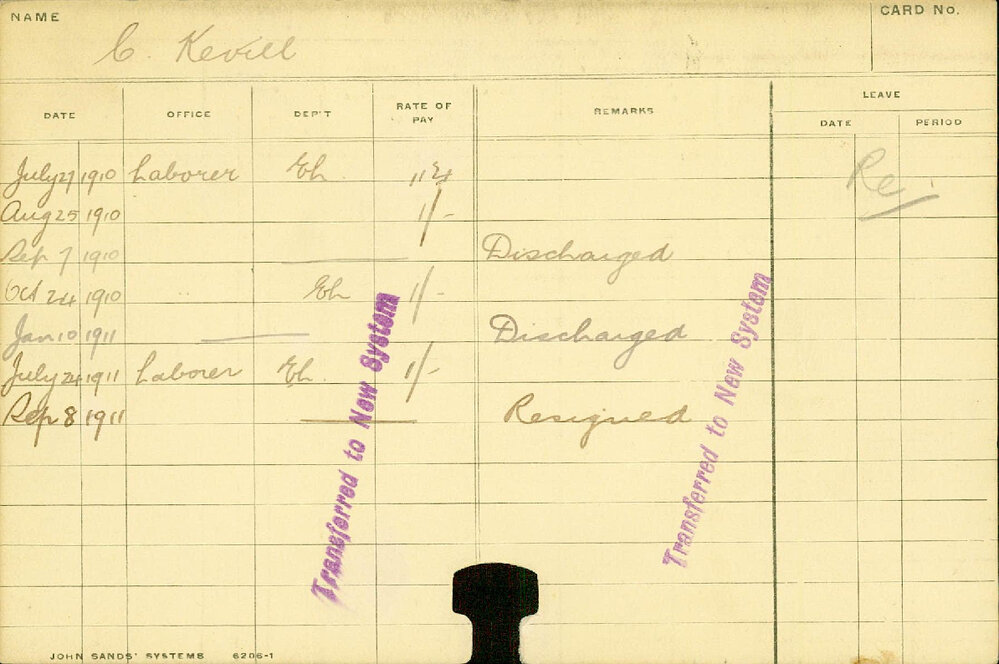 NAME
C. Kevill
CARD No.
DATE OFFICE DEP'T RATE OF PAY REMARKS LEAVE
DATE PERIOD
July 27 1910 Laborer Eh
Re
Aug 25 1910 1/-
Sep 7 1910 Discharged
Oct 24 1910 Eh 1/-
Jan 10 1911 Discharged
July 24 1911 Laborer Eh. 1/-
Sep 8 1911 Resigned
Transferred to New System
Transferred to New System
JOHN SANDS' SYSTEMS 6206-1